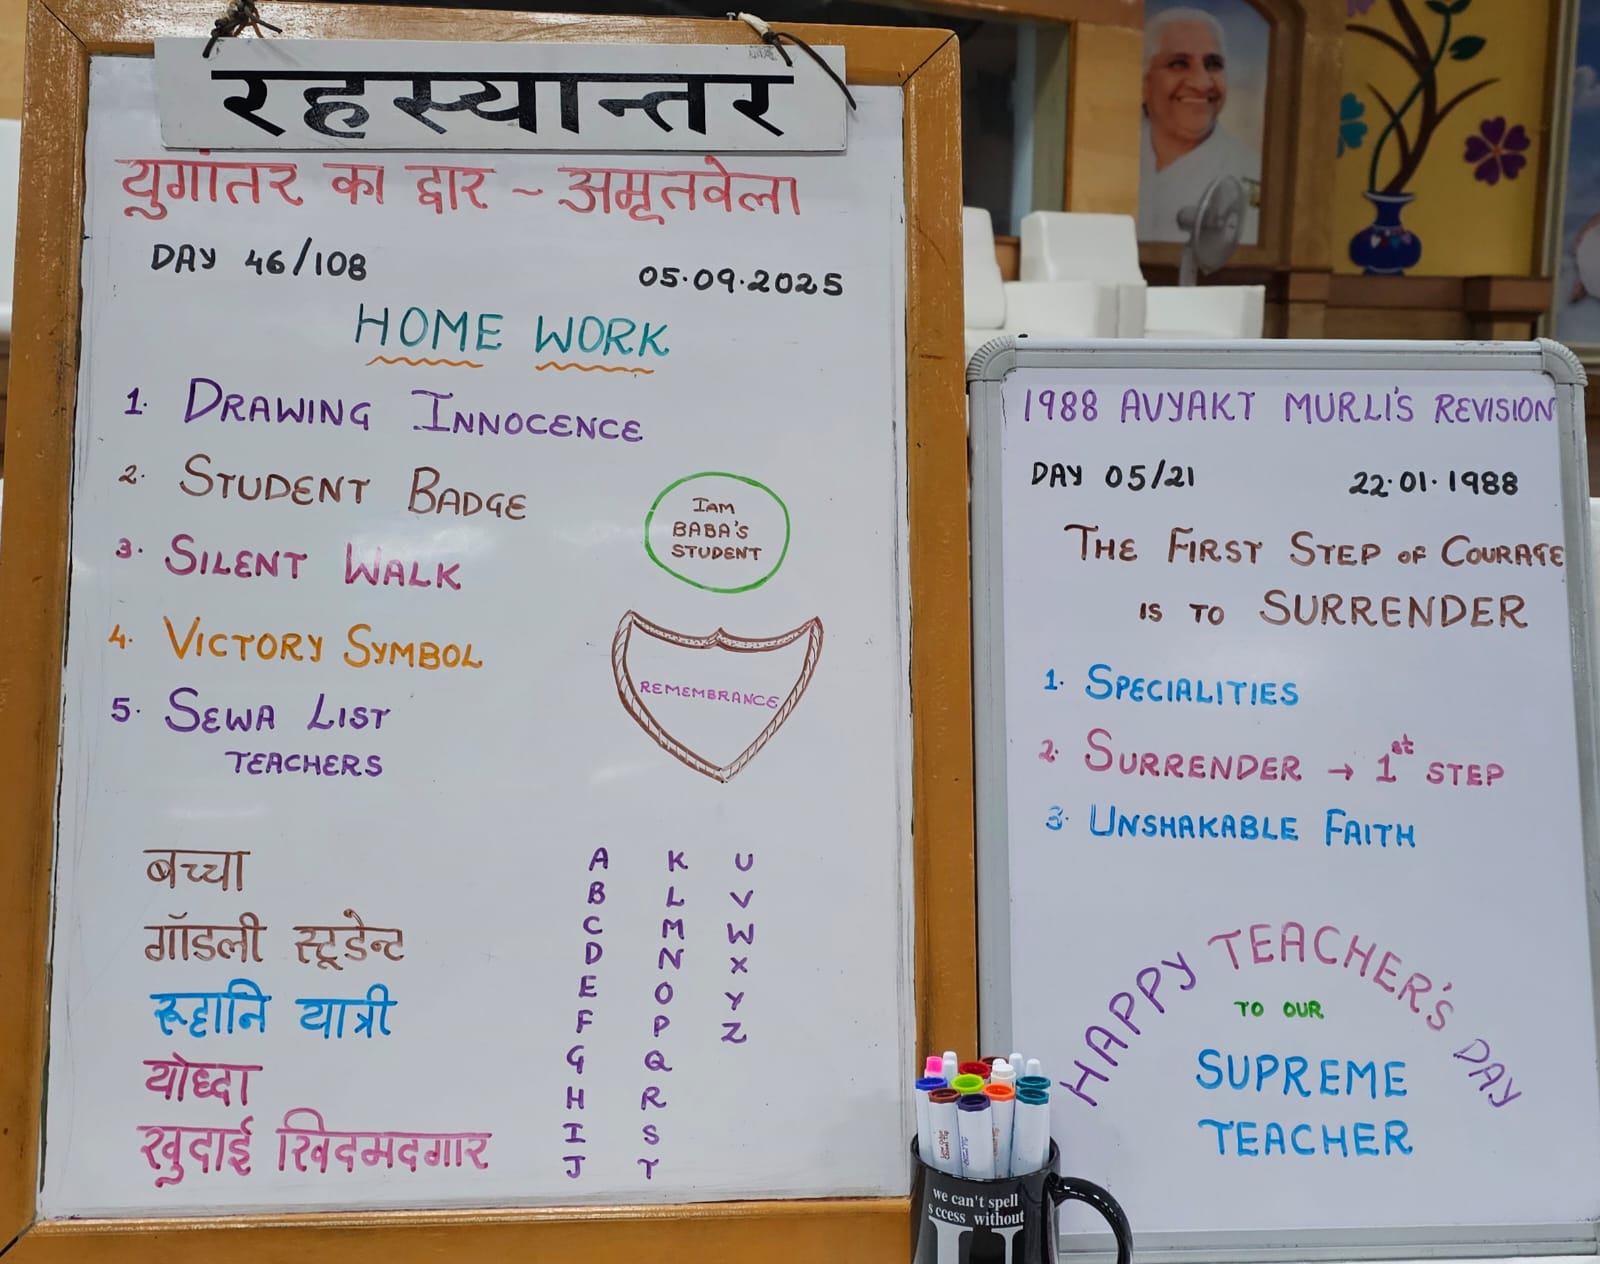 रहस्यान्तर
युगांतर का द्वार ~ अमृतवेला
DAY 46/108 05.09.2025
HOME WORK
1. DRAWING INNOCENCE
2. STUDENT BADGE
I AM
BABA'S
STUDENT
3. SILENT WALK
4. VICTORY SYMBOL
REMEMBRANCE
5. SEWA LIST
TEACHERS
बच्चा
गॉडली स्टूडेन्ट
रूहानि यात्री
योध्दा
खुदाई खिदमदगार
A K U
B L V
C M W
D N X
E O Y
F P Z
G Q
H R
I S
J T
1988 AVYAKT MURLI'S REVISION
DAY 05/21 22.01.1988
THE FIRST STEP OF COURAGE
IS TO SURRENDER
1. SPECIALITIES
2. SURRENDER → 1st STEP
3. UNSHAKABLE FAITH
HAPPY TEACHER'S DAY
TO OUR
SUPREME
TEACHER
we can't spell
s ccess without
U